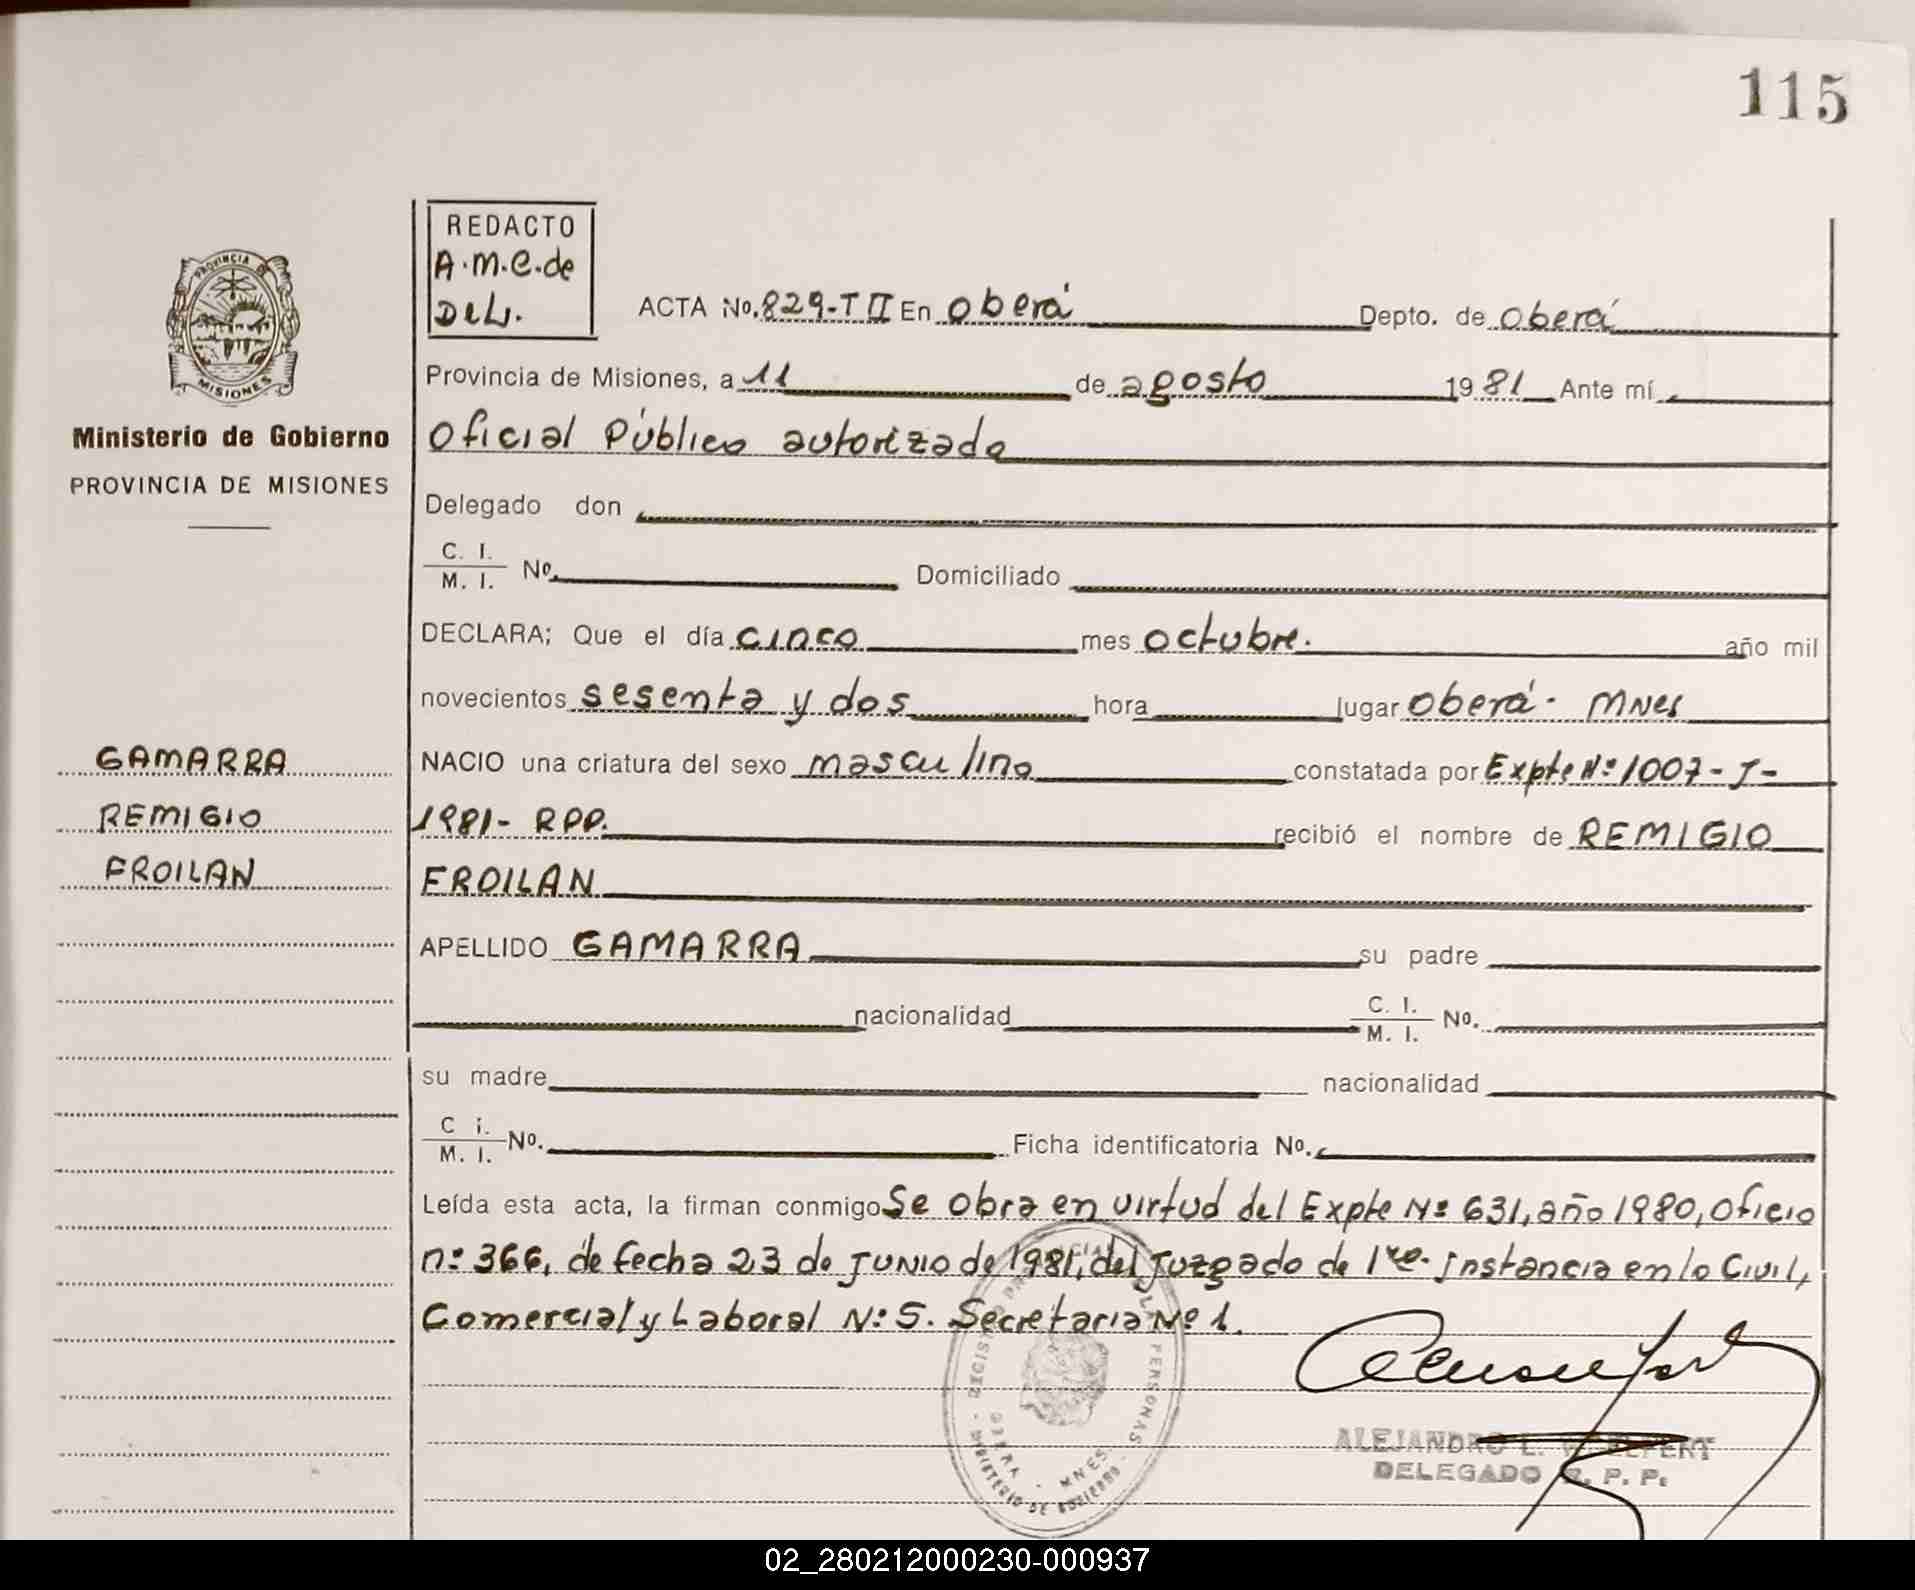 115
PROVINCIA DE
MISIONES
Ministerio de Gobierno
PROVINCIA DE MISIONES
GAMARRA
REMIGIO
FROILAN
REDACTO
A.M.C. de
DEL.
ACTA No. 829-T II En Oberá Depto. de Oberá
Provincia de Misiones, a 11 de agosto 1981 Ante mí
Oficial Público autorizado
Delegado don
C. I.
M. I. No. Domiciliado
DECLARA; Que el día cinco mes octubre. año mil
novecientos sesenta y dos hora lugar Oberá - MNes
NACIO una criatura del sexo masculino constatada por Expte Nº 1007-J-
1981- RPP. recibió el nombre de REMIGIO
FROILAN
APELLIDO GAMARRA su padre
nacionalidad C. I.
M. I. No.
su madre nacionalidad
C i.
M. I. No. Ficha identificatoria No.
Leída esta acta, la firman conmigo Se obra en virtud del Expte Nº 631, año 1980, Oficio
nº 366, de fecha 23 de JUNIO de 1981, del Juzgado de 1ra. Instancia en lo Civil,
Comercial y Laboral Nº 5. Secretaria Nº 1.
PERSONAS
OBERA - MNES.
MINISTERIO DE GOBIERNO
ALEJANDRO L.
DELEGADO R. P. P.
02_280212000230-000937